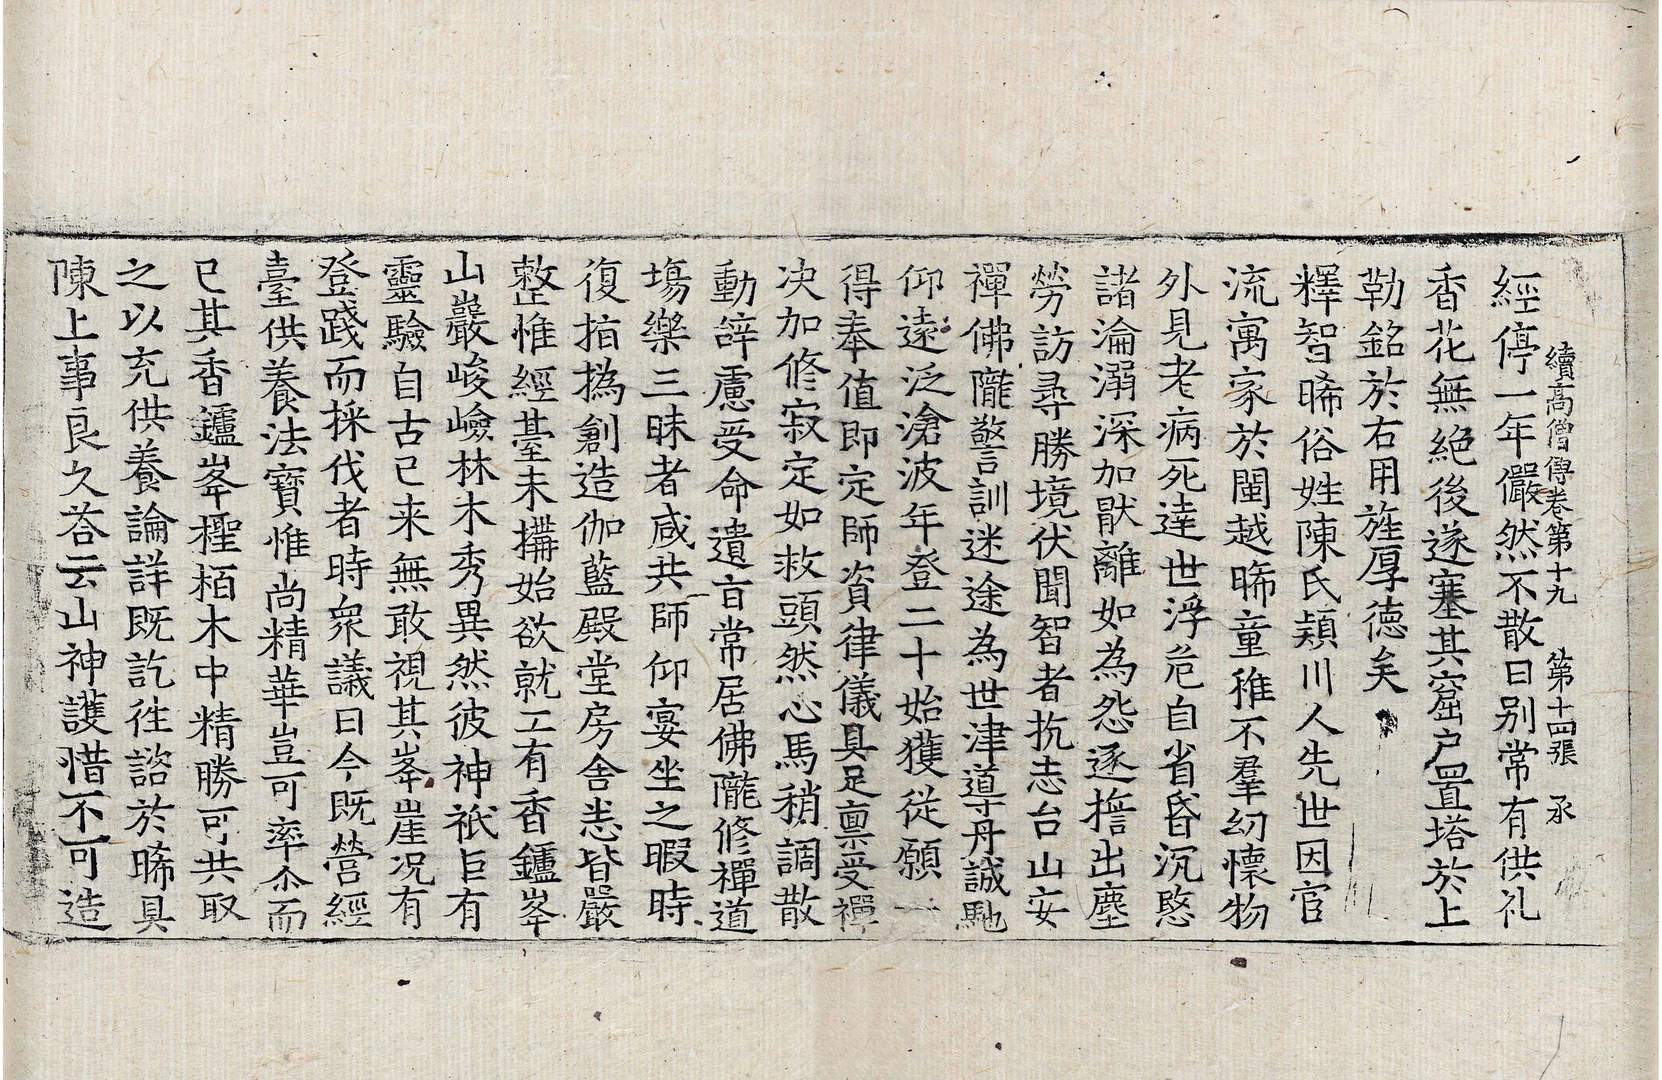 續高僧傳卷第十九 第十四張 承
經停一年儼然不散日別常有供礼
香花無絕後遂塞其窟户置塔於上
勒銘於右用旌厚德矣
釋智晞俗姓陳氏穎川人先世因官
流寓家於閩越晞童稚不羣幼懷物
外見老病死達世浮危自省昏沉愍
諸淪溺深加猒離如為怨逐擔出塵
勞訪尋勝境伏聞智者抗志台山安
禪佛隴警訓迷途為世津導丹誠馳
仰遠泛滄波年登二十始獲從願一
得奉值即定師資律儀具足稟受禪
决加修寂定如救頭然心馬稍調散
動辝慮受命遺旨常居佛隴修禪道
塲樂三昧者咸共師仰宴坐之暇時
復指撝創造伽藍殿堂房舍悉皆嚴
整惟經臺未搆始欲就工有香鑪峯
山巖峻嶮林木秀異然彼神祇巨有
靈驗自古已来無敢視其峯崖况有
登踐而採伐者時衆議曰今既營經
臺供養法寶惟尚精華豈可率尒而
已其香鑪峯檉栢木中精勝可共取
之以充供養論詳既訖徃諮於晞具
陳上事良久荅云山神護惜不可造